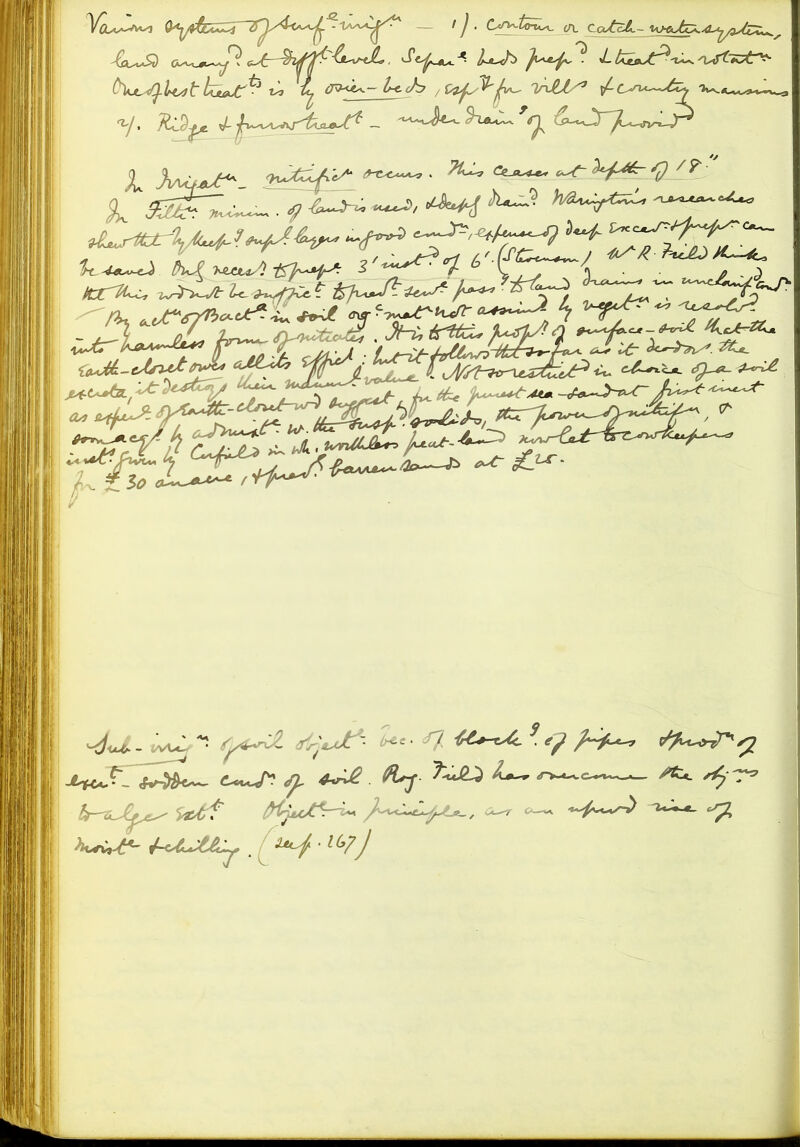 Various Systems of Surf.ce irrig.n — 1). Contour or catch-water system,
land arrang.d at diff.t levels. Separ.e beds prep.d & treat.d in rotat.n
One of best treat.ts is by osier-beds, esp.ly for vill.s & country mansions
2). Ridge & furrow treat.t — under drain.g of land prov.d
In Irrigat.n nitrific.n occurs. This ceases at depth of 18"
In Filt.n minim. of land is used, & deeply drain.d. Warington's researches
shew that by keep.g surf.e layers in good cond.n, expense of deep excav.n & prep.n can
be saved. Only necess.y to prep. 3' inst.d of 6'. (Stevenson) W R. Field thinks
that this w.d not be suffic.t to purify sew.e pass.g to land drains in uncleanif.d cond.n
By act.n of Bact.a in soil org.c mat.r not assim.d by veget.n is resolv.d
into harmless form of nitrates. It is to this prop.y of surface-soil that the
earth-closet owes all its effic.y; but it follows that so far as it deodor.s the
excreta, it destroys their manur.l value. Not so restrict.d in choice of a soil
as exper.e of earth-closet w.d suggest, for the purest sea-sand at first inert
soon acq.s by admixt.e w. the susp.d solids, the power of nitrify.g, &
inst.s given by Corfield in wh. worthless peat-land now let to cowkeepers
for £30 an acre, & prev.s barren sands at £25.
Sub-irrig.n of soil object.d bec. of block.g of pipes & prod.n of
excess.e sodden cond.n of soil. Rog. Field has overcome the obj.ns
to a large ext.t Object.n in principle, as an upward rise of
moist.e & chilling. (see p. 167)